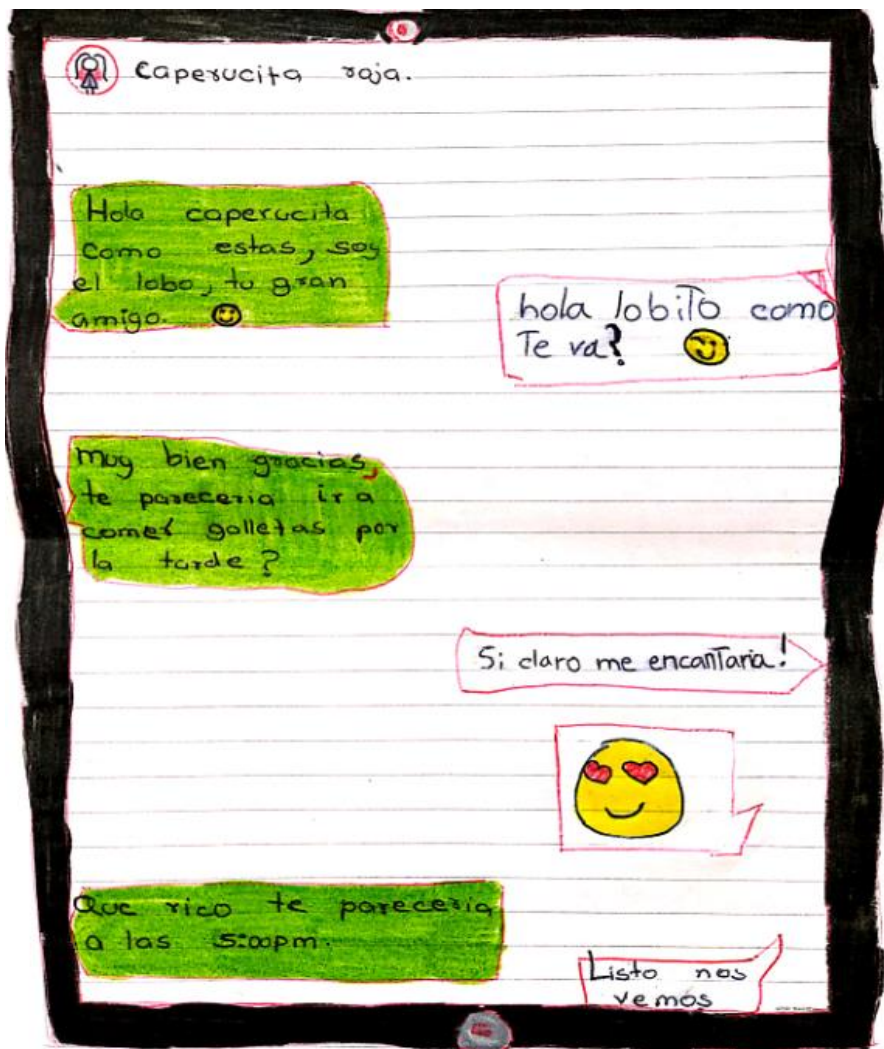 Caperucita roja.
Hola caperucita
como estas, soy
el lobo, tu gran
amigo.
hola lobito como
Te va?
muy bien gracias,
te pareceria ir a
comer galletas por
la tarde?
Si claro me encantaria!
Que rico te pareceria
a las 5:00pm.
Listo nos
vemos